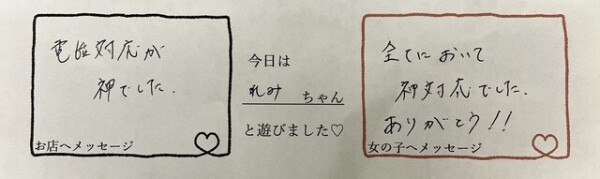 電話対応が
神でした.
お店へメッセージ
今日は
れみ ちゃん
と遊びました♡
全てにおいて
神対応でした.
ありがとう!!
女の子へメッセージ